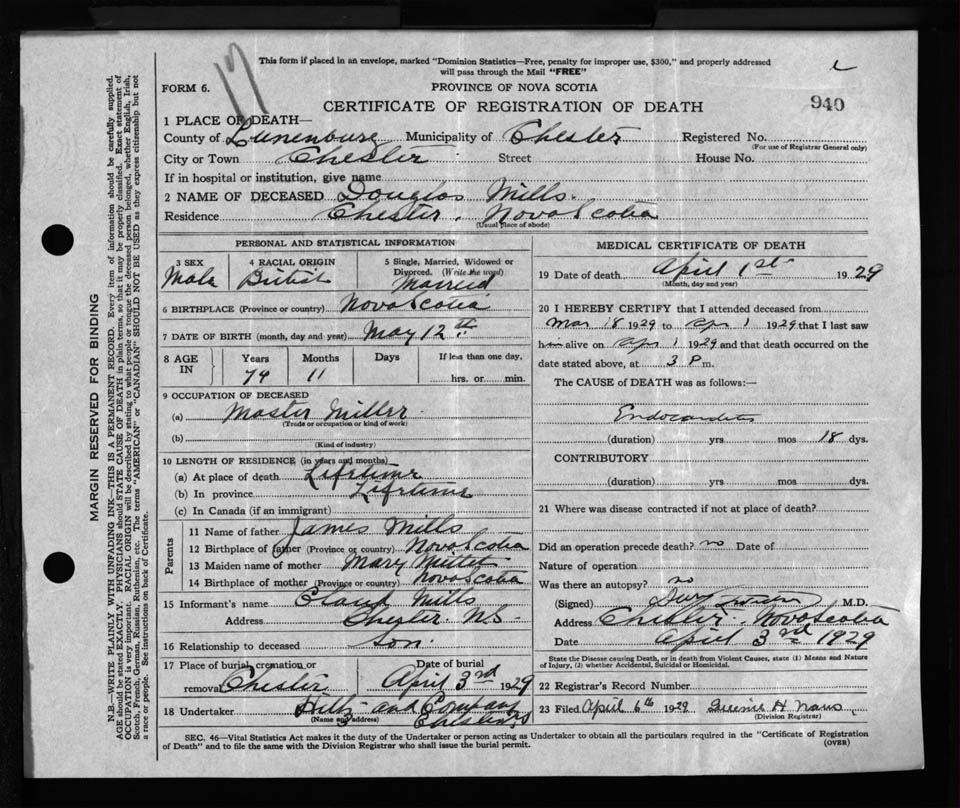 17
This form if placed in an envelope, marked "Dominion Statistics—Free, penalty for improper use, $300," and properly addressed
will pass through the Mail "FREE"
FORM 6.
PROVINCE OF NOVA SCOTIA
940
CERTIFICATE OF REGISTRATION OF DEATH
1 PLACE OF DEATH—
County of Lunenburg Municipality of Chester Registered No.
(For use of Registrar General only)
City or Town Chester Street House No.
If in hospital or institution, give name
2 NAME OF DECEASED Douglas Mills.
Residence Chester, Nova Scotia
(Usual place of abode)
PERSONAL AND STATISTICAL INFORMATION
3 SEX 4 RACIAL ORIGIN 5 Single, Married, Widowed or
Divorced. (Write the word)
Male British Married
6 BIRTHPLACE (Province or country) Nova Scotia
7 DATE OF BIRTH (month, day and year) May 12th
8 AGE IN Years Months Days If less than one day.
74 11 hrs. or min.
9 OCCUPATION OF DECEASED
(a) Master Miller
(Trade or occupation or kind of work)
(b)
(Kind of industry)
10 LENGTH OF RESIDENCE (in years and months)
(a) At place of death Lifetime
(b) In province Lifetime
(c) In Canada (if an immigrant)
Parents
11 Name of father James Mills
12 Birthplace of father (Province or country) Nova Scotia
13 Maiden name of mother Mary
14 Birthplace of mother (Province or country) Nova Scotia
15 Informant's name Mills
Address Chester N.S.
16 Relationship to deceased Son
17 Place of burial, cremation or Date of burial
removal Chester April 3rd 1929
18 Undertaker and Company
(Name and address) Chester NS
MEDICAL CERTIFICATE OF DEATH
19 Date of death April 1st 1929
(Month, day and year)
20 I HEREBY CERTIFY that I attended deceased from
Mar 18 1929 to Apr 1 1929 that I last saw
him alive on Apr 1 1929 and that death occurred on the
date stated above, at 3 P m.
The CAUSE of DEATH was as follows:—
Endocarditis
(duration) yrs mos 18 dys.
CONTRIBUTORY
(duration) yrs mos dys.
21 Where was disease contracted if not at place of death?
Did an operation precede death? no Date of
Nature of operation
Was there an autopsy? no
(Signed) M.D.
Address Chester Nova Scotia
Date April 3rd 1929
State the Disease causing Death, or in death from Violent Causes, state (1) Means and Nature
of Injury, (2) whether Accidental, Suicidal or Homicidal.
22 Registrar's Record Number
23 Filed April 6th 1929 H
(Division Registrar)
SEC. 46—Vital Statistics Act makes it the duty of the Undertaker or person acting as Undertaker to obtain all the particulars required in the "Certificate of Registration
of Death" and to file the same with the Division Registrar who shall issue the burial permit.
(OVER)
MARGIN RESERVED FOR BINDING
N.B.—WRITE PLAINLY WITH UNFADING INK—THIS IS A PERMANENT RECORD. Every item of information should be carefully supplied.
AGE should be stated EXACTLY. PHYSICIANS should STATE CAUSE OF DEATH in plain terms, so that it may be properly classified. Exact statement of
OCCUPATION is very important. RACIAL ORIGIN will be described by stating to what people or tongue the deceased person belonged, whether English, Irish,
Scotch, French, German, Russian, Ruthenian, etc. The terms "AMERICAN" or "CANADIAN" SHOULD NOT BE USED as they express citizenship but not
a race or people. See instructions on back of Certificate.